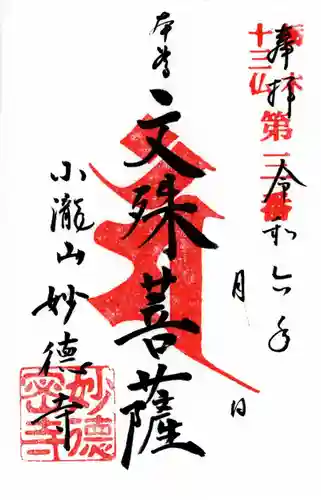 奉拝 令和六年 月 日
十三仏 第三番
本尊
文殊菩薩
小瀧山 妙德寺
妙德
密寺